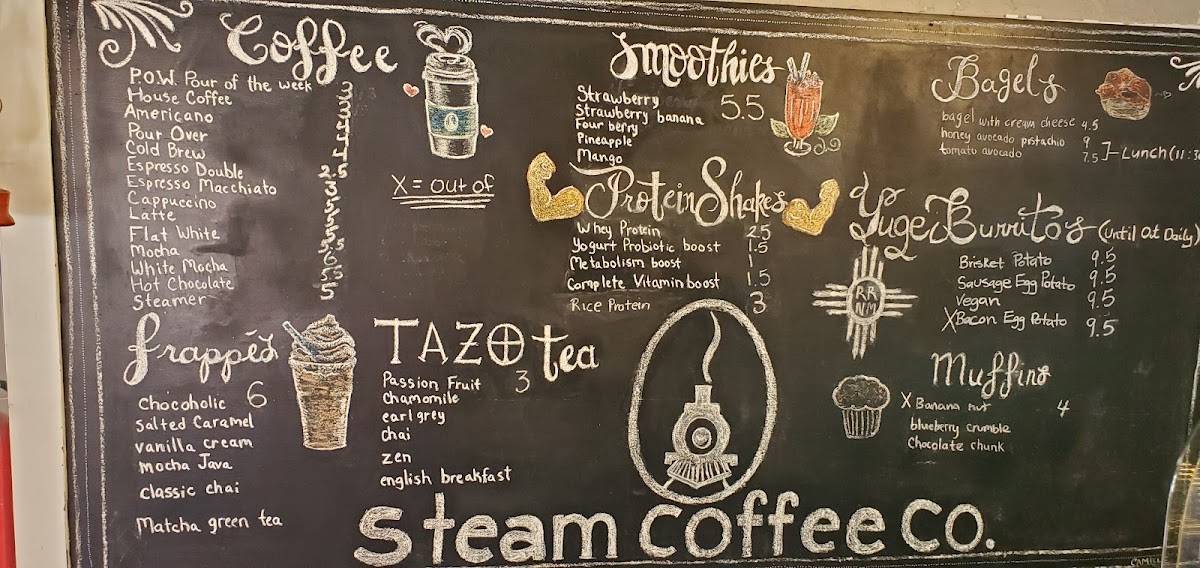 Coffee
P.O.W. Pour of the week
House Coffee
Americano
Pour Over
Cold Brew
Espresso Double
Espresso Macchiato
Cappuccino
Latte
Flat White
Mocha
White Mocha
Hot Chocolate
Steamer
X = out of
Frappés
6
Chocoholic
Salted Caramel
vanilla cream
Mocha Java
classic chai
Matcha green tea
TAZO tea
3
Passion Fruit
Chamomile
earl grey
chai
zen
english breakfast
Smoothies
5.5
Strawberry
Strawberry banana
Four berry
Pineapple
Mango
Protein Shakes
Whey Protein 2.5
Yogurt Probiotic boost 1.5
Metabolism boost 1
Complete Vitamin boost 1.5
Rice Protein 3
Bagels
bagel with cream cheese 4.5
honey avocado pistachio 9
tomato avocado 7.5
Lunch (11:3
Yuge Burritos (Until Out Daily)
Brisket Potato 9.5
Sausage Egg Potato 9.5
Vegan 9.5
X Bacon Egg Potato 9.5
RR
NM
Muffins
4
X Banana nut
blueberry crumble
Chocolate chunk
Steam Coffee Co.